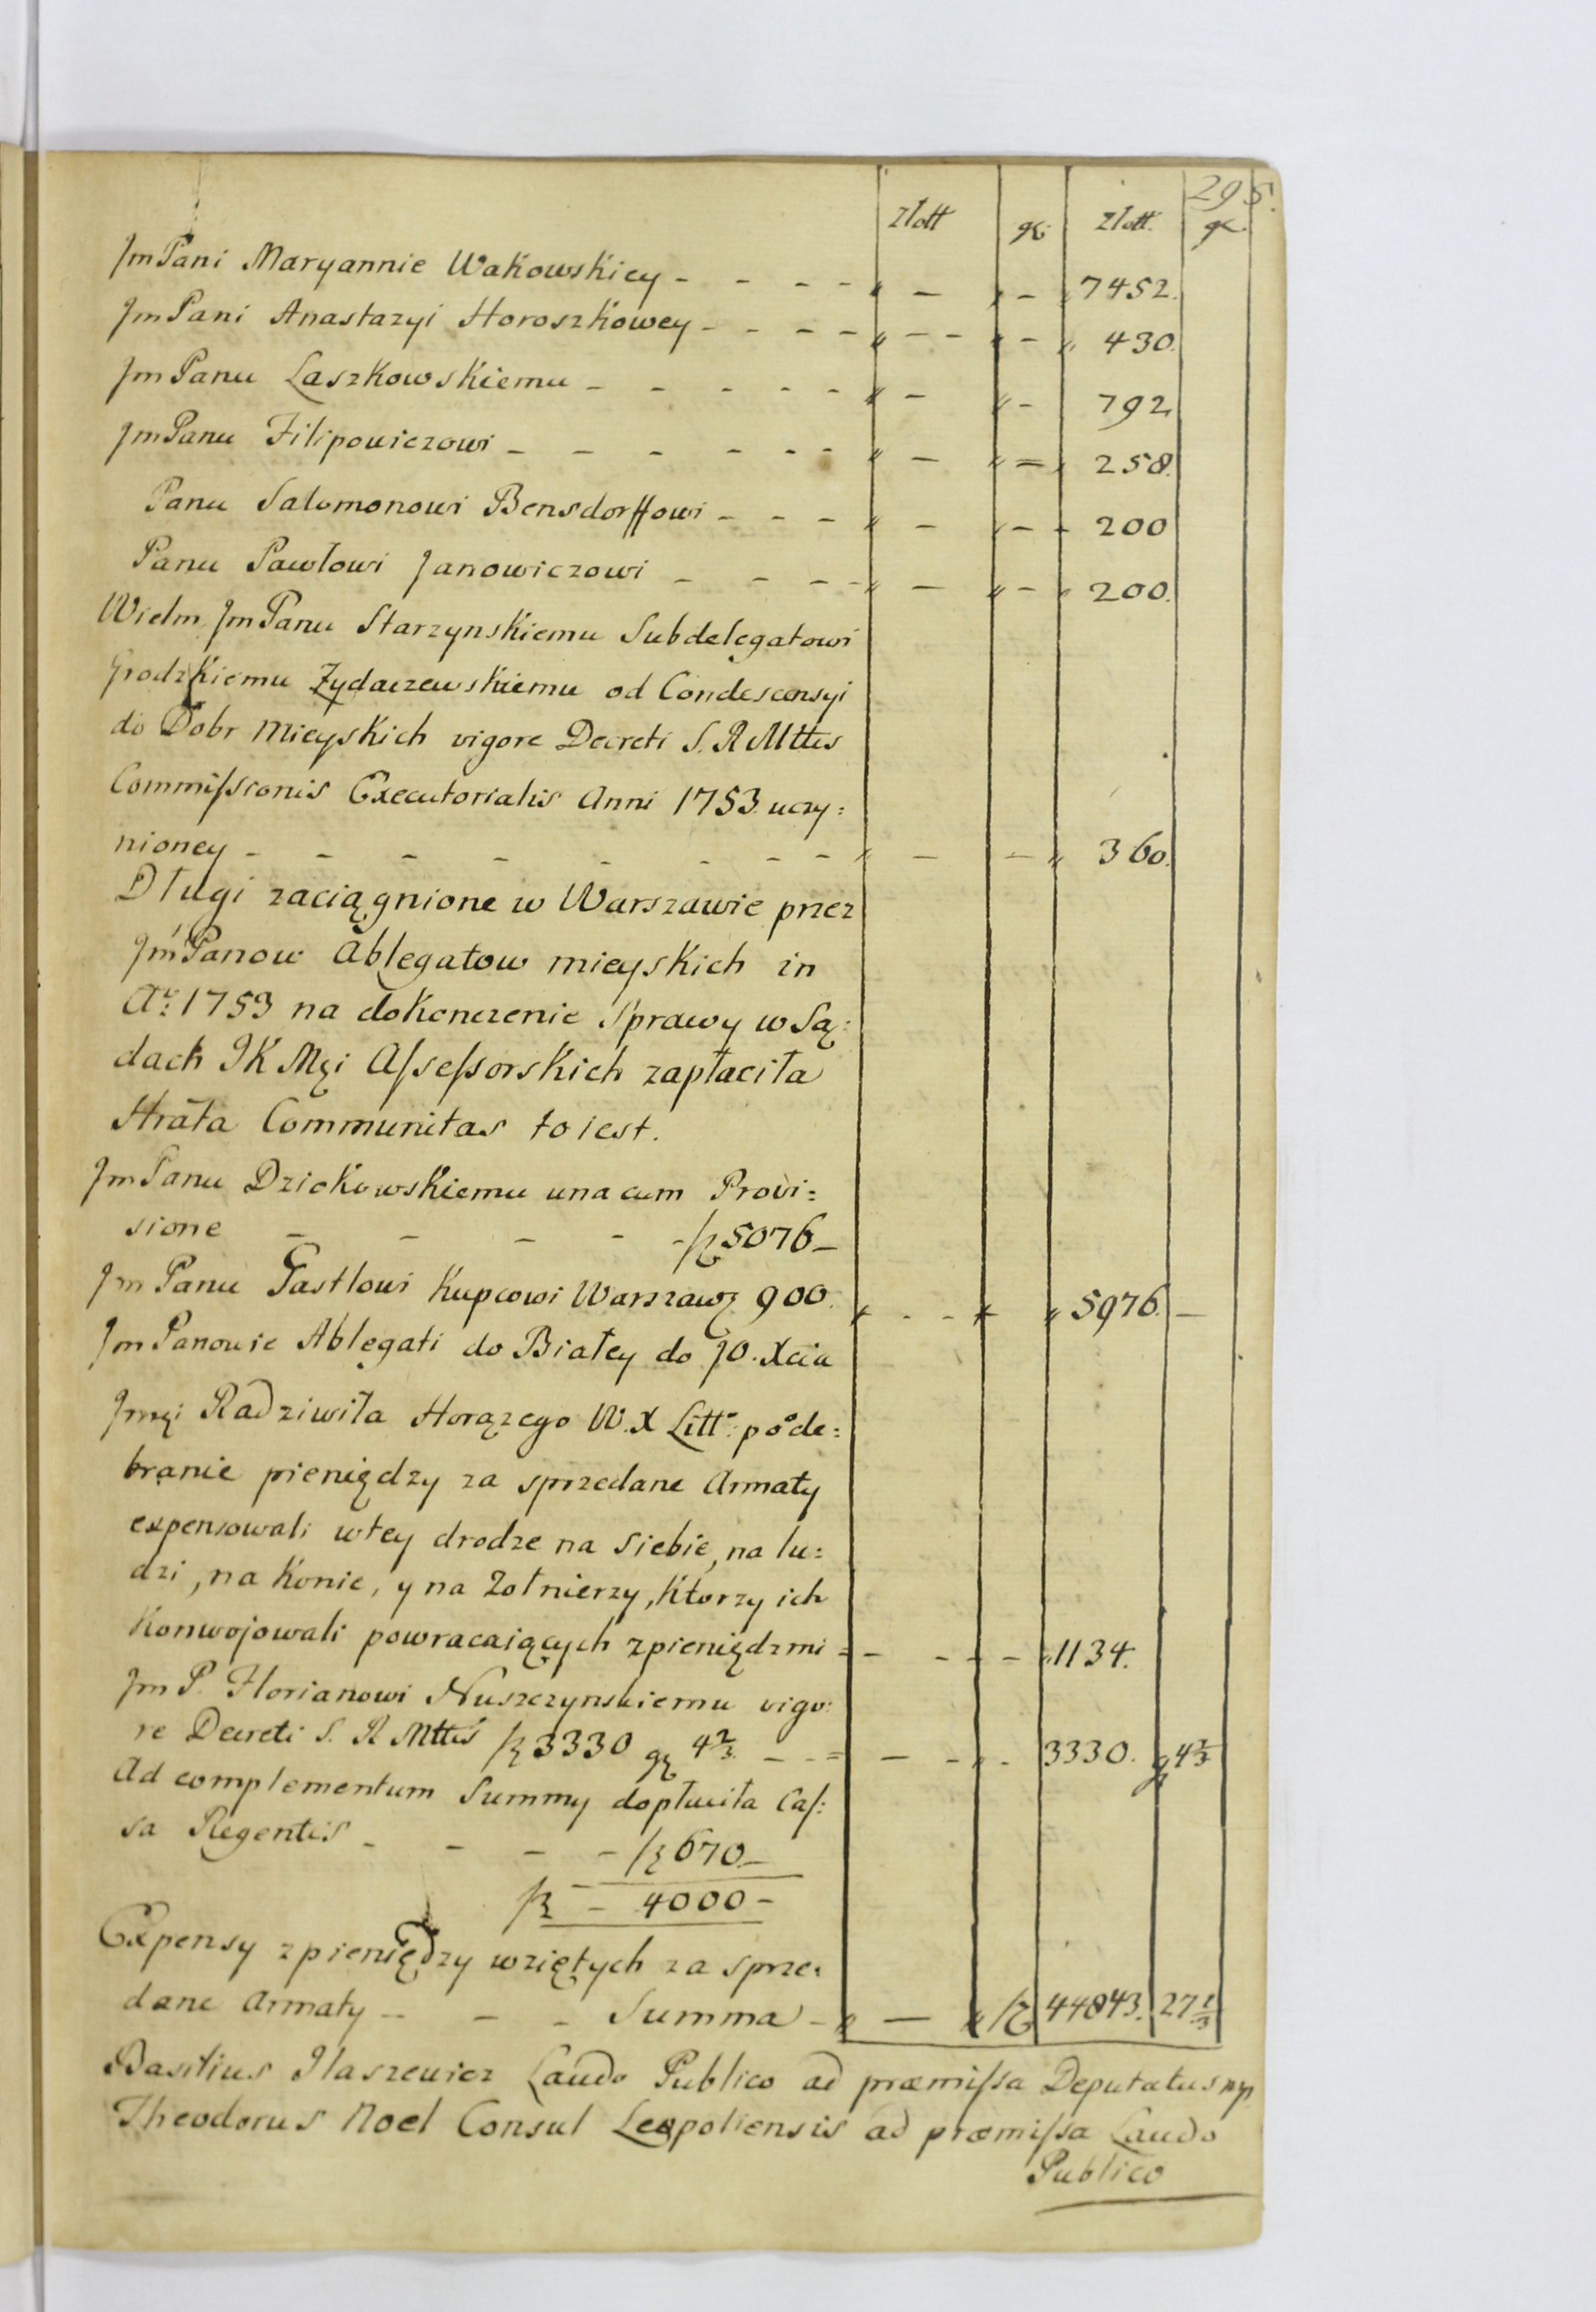 295.
Złott gr. Złott. gr.
JmPani Maryannie Wakowskiey - - - - " - " - " 7452.
JmPani Anastazyi Horoszkowey - - - - " - - " - " 430.
JmPanu Laszkowskiemu - - - - - " - " - 792
JmPanu Filipowiczowi - - - - - - " - " = " 258.
Panu Salomonowi Bensdorffowi - - - " - " - - 200
Panu Pawłowi Janowiczowi - - - - " - " - " 200.
Wielm. JmPanu Starzynskiemu Subdelegatowi
Grodzkiemu Zydaczewskiemu od Condescensyi
do Dobr Mieyskich vigore Decreti S. R Mttis
Commissionis Executorialis Anni 1753. uczy:
nioney - - - - - - - - " - - " 360.
Długi zaciągnione w Warszawie przez
JmPanow Ablegatow mieyskich in
Aº: 1753 na dokonczenie Sprawy w Są:
dach JK Mci Assessorskich zapłaciła
Strata Communitas to iest.
JmPanu Dziokowskiemu una cum Provi:
sione - - - - - fl 5076 -
Jm Panu Gastlowi Kupcowi Warszaw 900. " - - " " 5976. -
Jm Panowie Ablegati do Białey do JO. Xcia
Jmci Radziwiła Horązego W. X Litt: po ode:
branie pieniędzy za sprzedane Armaty
expensowali w tey drodze na siebie, na lu:
dzi, na Konie, y na Zołnierzy, Ktorzy ich
Konwojowali powracaiących z pieniędzmi = - - - - " 1134.
Jm P. Florianowi Nuszczynskiemu vigo:
re Decreti S. R Mttis fl 3330 gr 4⅔. - - = - - " - 3330. gr 4⅔
Ad complementum Summy dopłaciła Cas:
sa Regentis - - - - fl 670 -
fl - 4000 -
Expensy z pieniędzy wziętych za sprze:
dane Armaty - - - Summa - " - " fl 44843. 27⅓
Basilius Ilaszewicz Laudo Publico ad præmissa Deputatus mp
Theodorus Noel Consul Leopoliensis ad præmissa Laudo
Publico